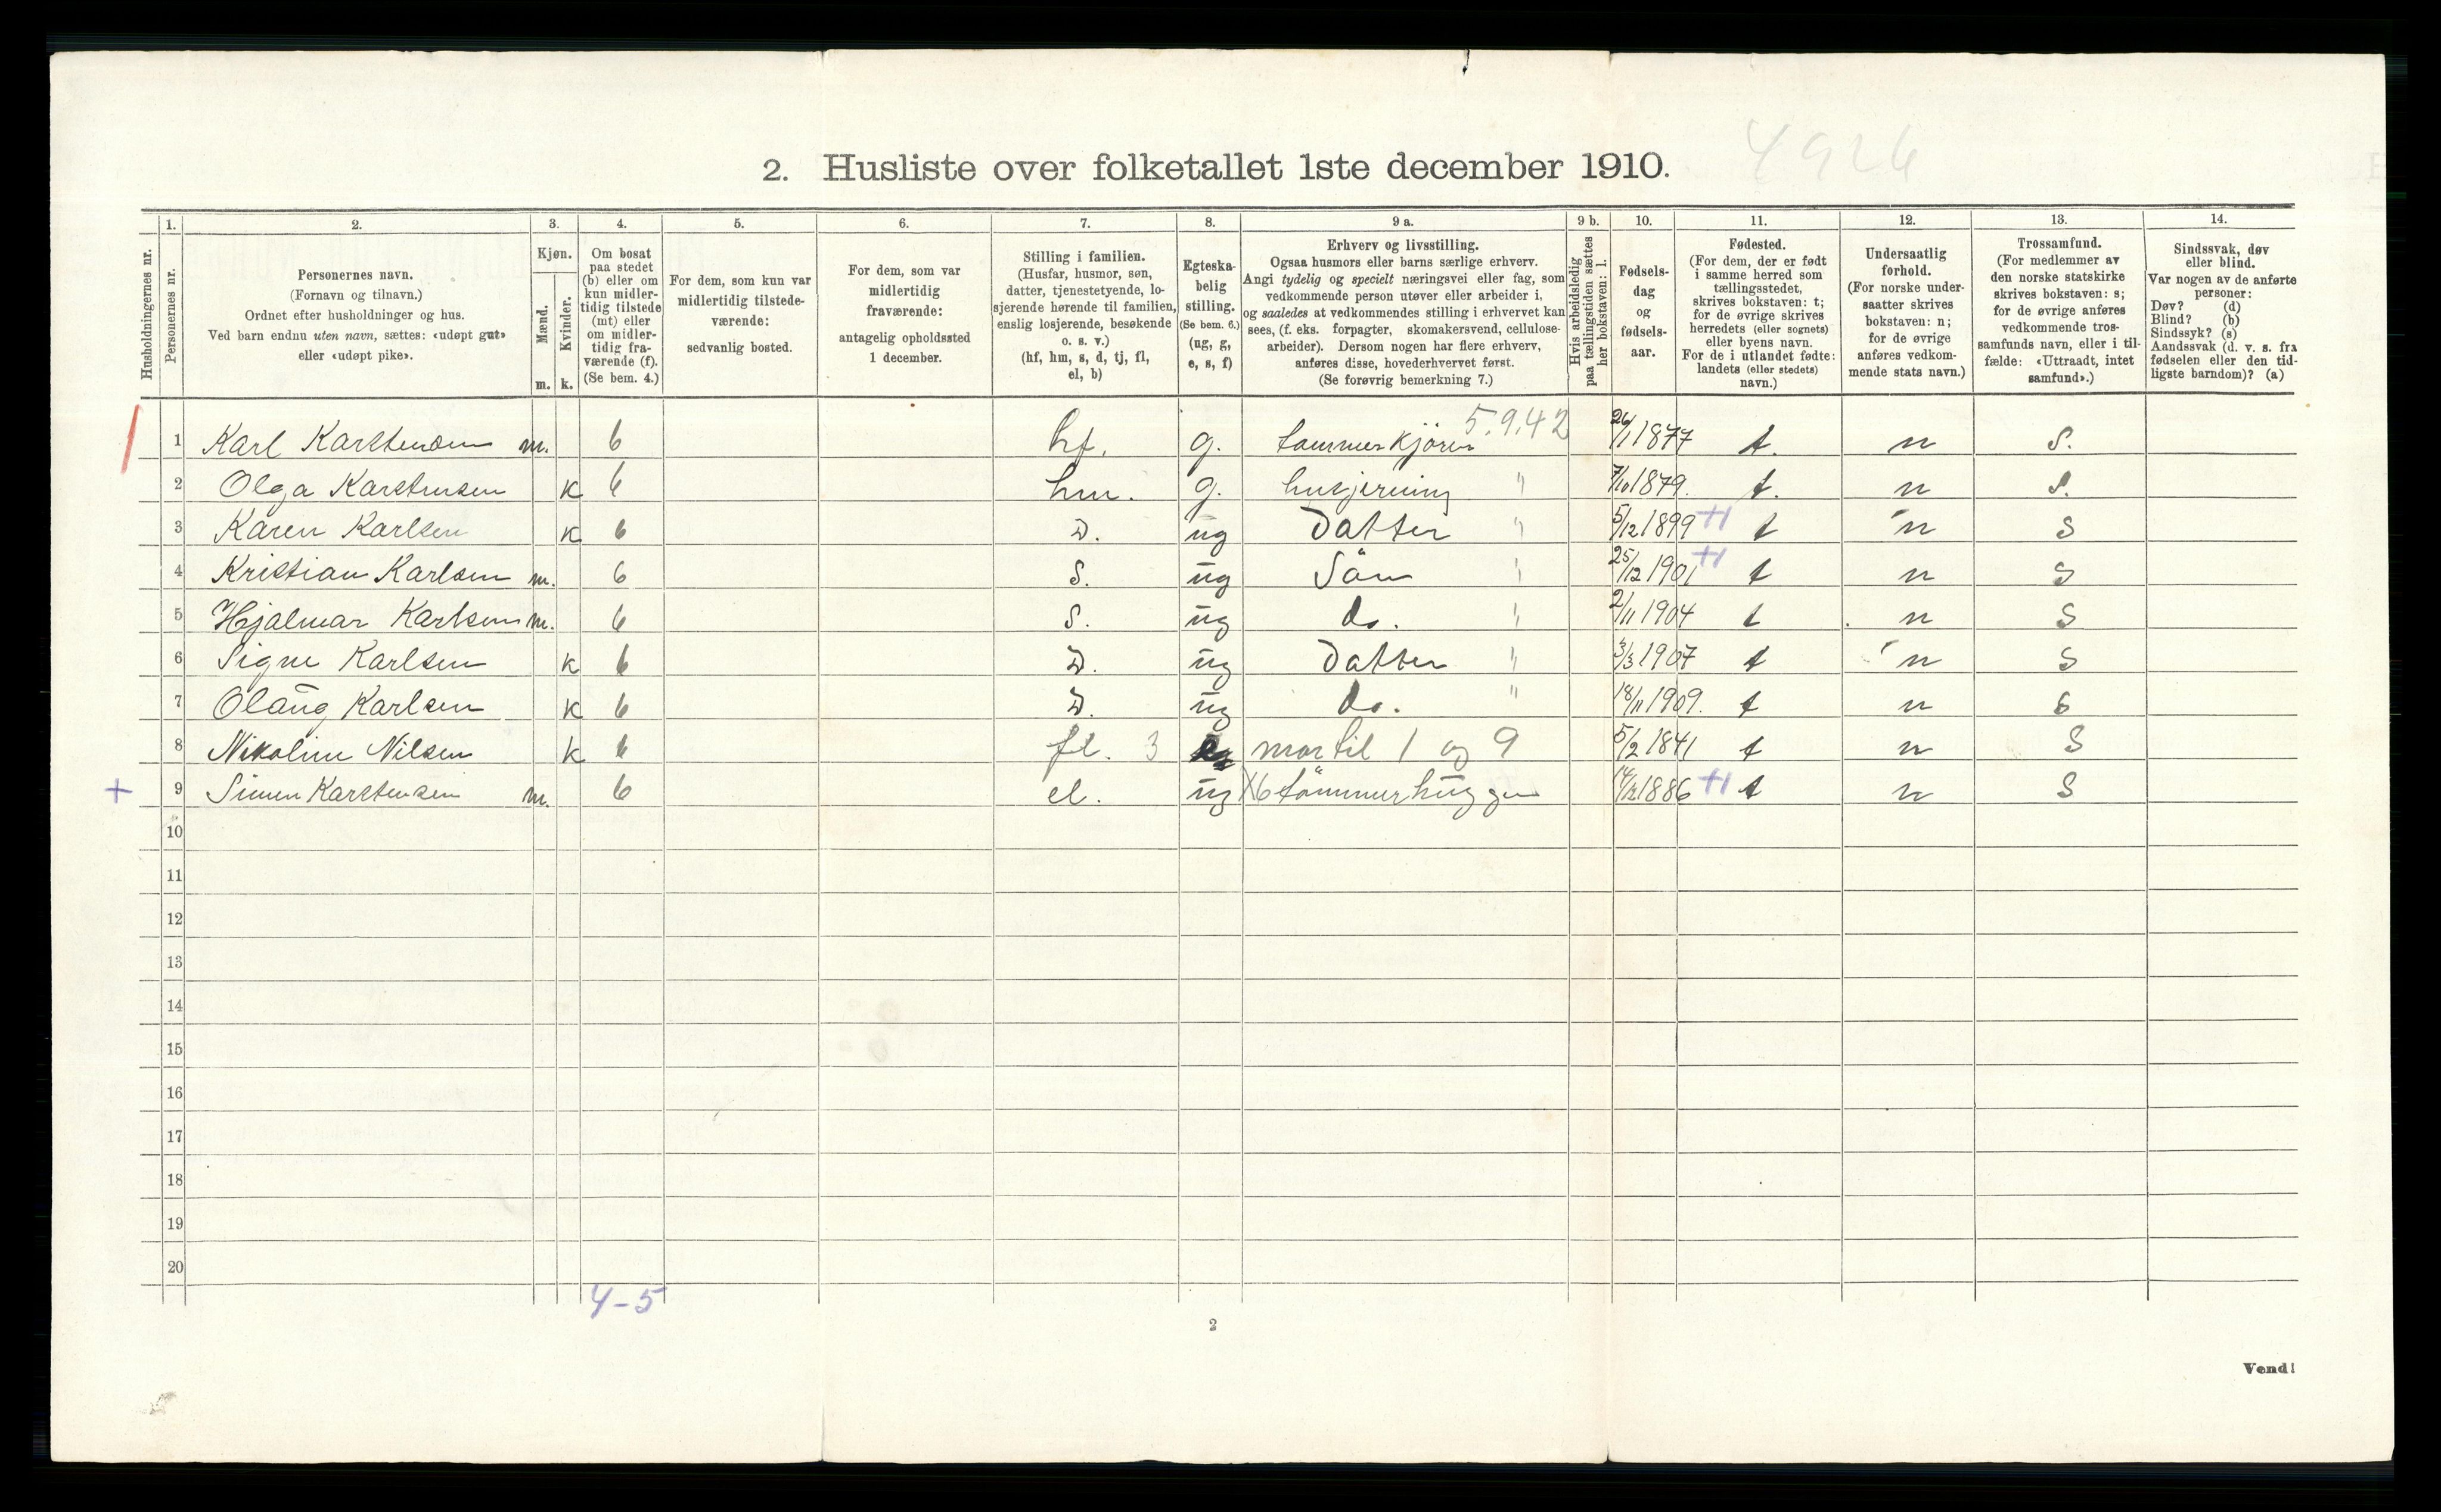 4926
2. Husliste over folketallet 1ste december 1910.
Husholdningernes nr.
1. Personernes nr.
2. Personernes navn. (Fornavn og tilnavn.) Ordnet efter husholdninger og hus. Ved barn endnu uten navn, sættes: «udøpt gut» eller «udøpt pike».
3. Kjøn. Mænd. m. Kvinder. k.
4. Om bosat paa stedet (b) eller om kun midlertidig tilstede (mt) eller om midlertidig fraværende (f). (Se bem. 4.)
5. For dem, som kun var midlertidig tilstedeværende: sedvanlig bosted.
6. For dem, som var midlertidig fraværende: antagelig opholdssted 1 december.
7. Stilling i familien. (Husfar, husmor, søn, datter, tjenestetyende, losjerende hørende til familien, enslig losjerende, besøkende o. s. v.) (hf, hm, s, d, tj, fl, el, b)
8. Egteskabelig stilling. (Se bem. 6.) (ug, g, e, s, f)
9 a. Erhverv og livsstilling. Ogsaa husmors eller barns særlige erhverv. Angi tydelig og specielt næringsvei eller fag, som vedkommende person utøver eller arbeider i, og saaledes at vedkommendes stilling i erhvervet kan sees, (f. eks. forpagter, skomakersvend, cellulosearbeider). Dersom nogen har flere erhverv, anføres disse, hovederhvervet først. (Se forøvrig bemerkning 7.)
9 b. Hvis arbeidsledig paa tællingstiden sættes her bokstaven: l.
10. Fødselsdag og fødselsaar.
11. Fødested. (For dem, der er født i samme herred som tællingsstedet, skrives bokstaven: t; for de øvrige skrives herredets (eller sognets) eller byens navn. For de i utlandet fødte: landets (eller stedets) navn.)
12. Undersaatlig forhold. (For norske undersaatter skrives bokstaven: n; for de øvrige anføres vedkommende stats navn.)
13. Trossamfund. (For medlemmer av den norske statskirke skrives bokstaven: s; for de øvrige anføres vedkommende trossamfunds navn, eller i tilfælde: «Uttraadt, intet samfund».)
14. Sindssvak, døv eller blind. Var nogen av de anførte personer: Døv? (d) Blind? (b) Sindssyk? (s) Aandssvak (d. v. s. fra fødselen eller den tidligste barndom)? (a)
5.9.42
1 Karl Karstensen m. b hf. g. tømmerkjører 26/1 1877 t. n S.
2 Olga Karstensen k b hm. g. husjerning " 7/10 1879. t. n S.
3 Karen Karlsen k b D. ug Datter " 5/12 1899 +1 t n S
4 Kristian Karlsen m. b S. ug Sön " 25/12 1901 +1 t n S
5 Hjalmar Karlsen m. b S. ug do. " 2/11 1904 t n S
6 Signe Karlsen k b D. ug Datter " 3/3 1907 t n S
7 Olaug Karlsen k b D. ug do. " 18/11 1909. t n S
8 Nikoline Nilsen k b fl. 3 mor til 1 og 9 5/2 1841 t n S
+ 9 Simen Karstensen m. b el. ug X6 tömmerhugger 14/2 1886 +1 t n S
10
11
12
13
14
15
16
17
18
19
20
4-5
2
Vend!